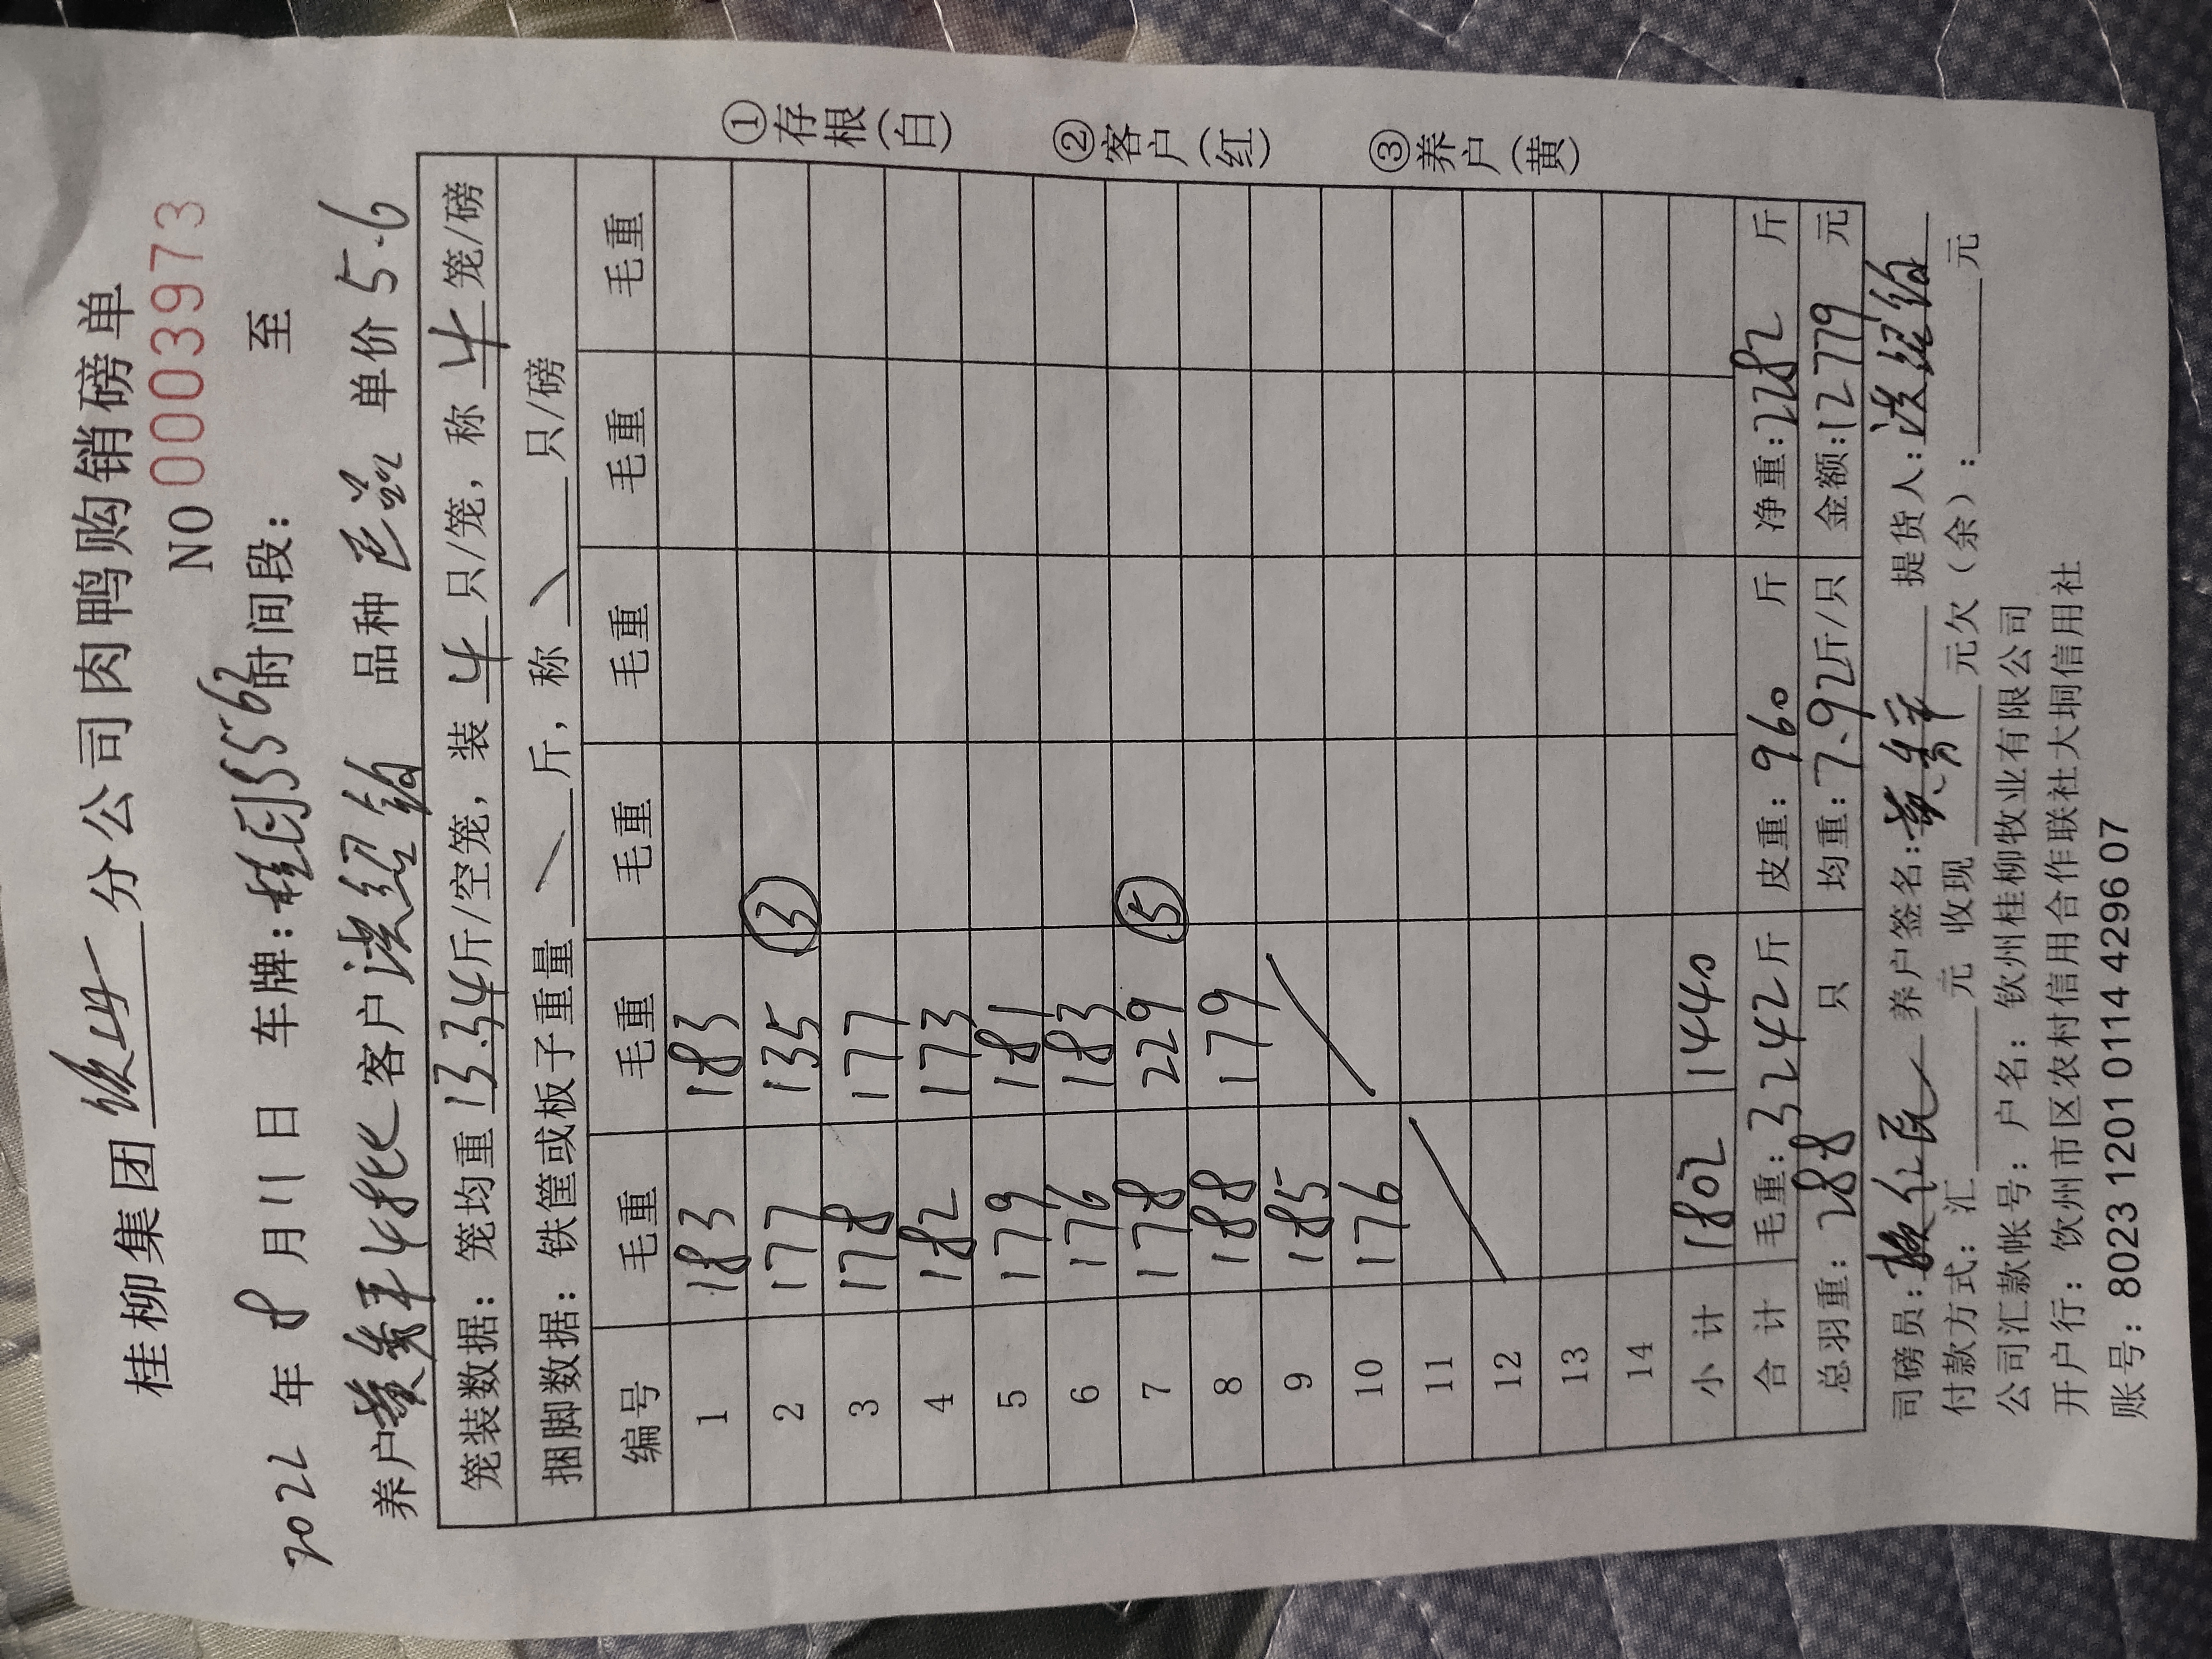 桂柳集团 钦州 分公司肉鸭购销磅单
NO 0003973
2022 年 8 月 11 日 车牌: 桂 5562 时间段: 至
养户 黄 平 4批 客户 绍 品种 单价 5.6
笼装数据: 笼均重 13.34 斤/空笼, 装 4 只/笼, 称 4 笼/磅
捆脚数据: 铁筐或板子重量 \ 斤, 称 \ 只/磅
编号 毛重 毛重 毛重 毛重 毛重 毛重
1 183 183
2 177 135 ③
3 178 177
4 182 173
5 179 181
6 176 183
7 178 229 ⑤
8 188 179
9 185
10 176
11
12
13
14
小计 1802 1440
合计 毛重: 3242 斤 皮重: 960 斤 净重: 2282 斤
总羽重: 288 只 均重: 7.92 斤/只 金额: 12779 元
司磅员: 养户签名: 黄 平 提货人: 绍
付款方式: 汇 元 收现 元欠(余): 元
公司汇款帐号: 户名: 钦州桂柳牧业有限公司
开户行: 钦州市区农村信用合作联社大垌信用社
账号: 8023 1201 0114 4296 07
①存根(白)
②客户(红)
③养户(黄)